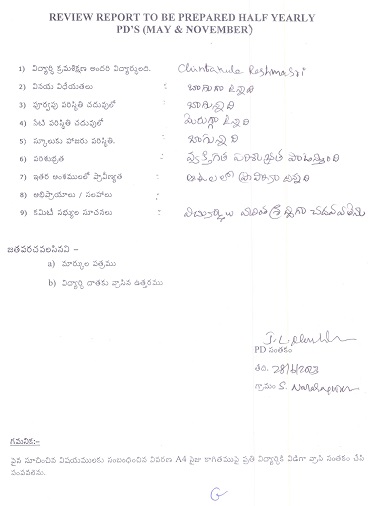 REVIEW REPORT TO BE PREPARED HALF YEARLY
PD'S (MAY & NOVEMBER)
1) విద్యార్థి క్రమశిక్షణ అందరి విద్యార్థులది. Chintanula Reshma Sri
2) వినయ విధేయతలు : బాగుగా ఉన్నది
3) పూర్వపు పరిస్థితి చదువులో : బాగున్నది
4) నేటి పరిస్థితి చదువులో : మెరుగ్గా ఉన్నది
5) స్కూలుకు హాజరు పరిస్థితి. : బాగున్నది
6) పరిశుభ్రత : వ్యక్తిగత పరిశుభ్రత పాటిస్తుంది
7) ఇతర అంశములలో ప్రావీణ్యత : ఆటలలో ప్రావీణ్యం ఉన్నది
8) అభిప్రాయాలు / సలహాలు :
9) కమిటీ సభ్యుల సూచనలు :
జతపరచవలసినవి –
a) మార్కుల పత్రము
b) విద్యార్థి దాతకు వ్రాసిన ఉత్తరము
PD సంతకం
తేది. 28/6/2023
గ్రామం S. Narasapuram
గమనిక:-
పైన సూచించిన విషయములకు సంబంధించిన వివరణ A4 సైజు కాగితముపై ప్రతి విద్యార్థికి విడిగా వ్రాసి సంతకం చేసి
పంపవలెను.